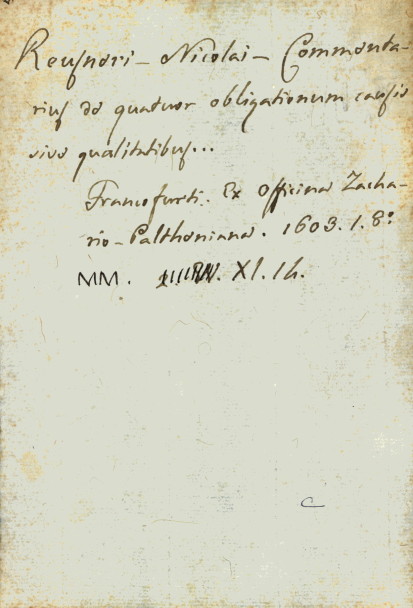 Reusneri - Nicolai - Commenta-
rius de quatuor obligationum causis
sive qualitatibus...
Francofurti. Ex Officina Zacha-
rio-Palthoniana. 1603. 1. 8º
MM. XI. 14.